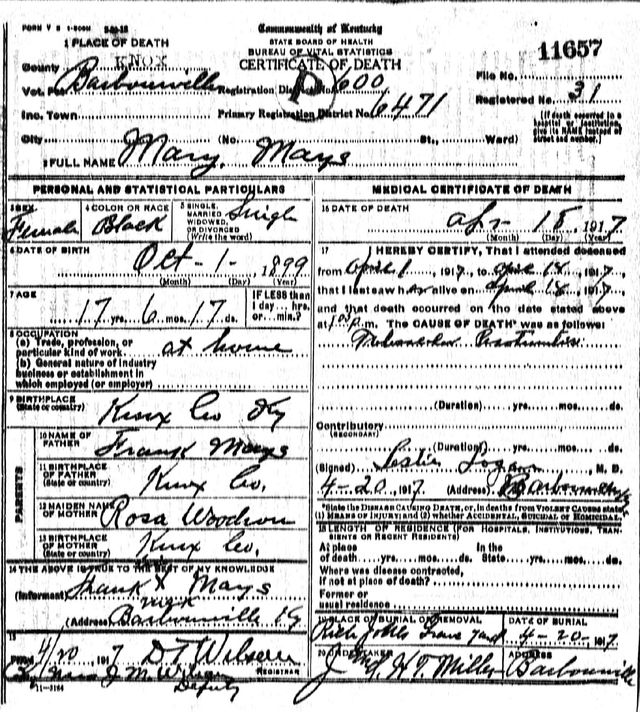 FORM V S 1-500M 5-22-12
Commonwealth of Kentucky
STATE BOARD OF HEALTH
BUREAU OF VITAL STATISTICS
CERTIFICATE OF DEATH
11657
1 PLACE OF DEATH
County KNOX
Vot. Pct Barbourville
Registration District No. 600
File No.
Inc. Town
Primary Registration District No. 6471
Registered No. 31
City (No. St., Ward)
(If death occurred in a hospital or institution, give its NAME instead of street and number.)
2 FULL NAME Mary Mays
PERSONAL AND STATISTICAL PARTICULARS
3 SEX Female
4 COLOR OR RACE Black
5 SINGLE, MARRIED, WIDOWED, OR DIVORCED (Write the word) Singl
6 DATE OF BIRTH Oct-1-, 1899
(Month) (Day) (Year)
7 AGE 17 yrs. 6 mos. 17 ds.
IF LESS than 1 day... hrs. or... min.?
8 OCCUPATION
(a) Trade, profession, or particular kind of work at home
(b) General nature of industry business or establishment in which employed (or employer)
9 BIRTHPLACE (State or country) Knox Co Ky
PARENTS
10 NAME OF FATHER Frank Mays
11 BIRTHPLACE OF FATHER (State or country) Knox Co.
12 MAIDEN NAME OF MOTHER Rosa Woodson
13 BIRTHPLACE OF MOTHER (State or country) Knox Co.
14 THE ABOVE IS TRUE TO THE BEST OF MY KNOWLEDGE
(Informant) Frank X Mays
mark
(Address) Barbourville Ky
15
Filed 4/20 1917 D T Wilson
REGISTRAR
J M Wilson
Deputy
11-3184
MEDICAL CERTIFICATE OF DEATH
16 DATE OF DEATH
apr 18, 1917
(Month) (Day) (Year)
17 I HEREBY CERTIFY, That I attended deceased
from April 1, 1917, to April 18, 1917,
that I last saw her alive on April 18, 1917,
and that death occurred on the date stated above
at p.m. The CAUSE OF DEATH was as follows:
(Duration) yrs. mos. ds.
Contributory
(SECONDARY)
(Duration) yrs. mos. ds.
(Signed) Leslie Logan, M. D.
4-20, 1917 (Address) Barbourville
*State the DISEASE CAUSING DEATH, or, in deaths from VIOLENT CAUSES state (1) MEANS OF INJURY; and (2) whether ACCIDENTAL, SUICIDAL or HOMICIDAL.
18 LENGTH OF RESIDENCE (FOR HOSPITALS, INSTITUTIONS, TRANSIENTS OR RECENT RESIDENTS)
At place of death yrs. mos. ds. In the State yrs. mos. ds.
Where was disease contracted, if not at place of death?
Former or usual residence
19 PLACE OF BURIAL OR REMOVAL
Grave Yard
DATE OF BURIAL
4-20, 1917
20 UNDERTAKER
H T Miller
ADDRESS
Barbourville